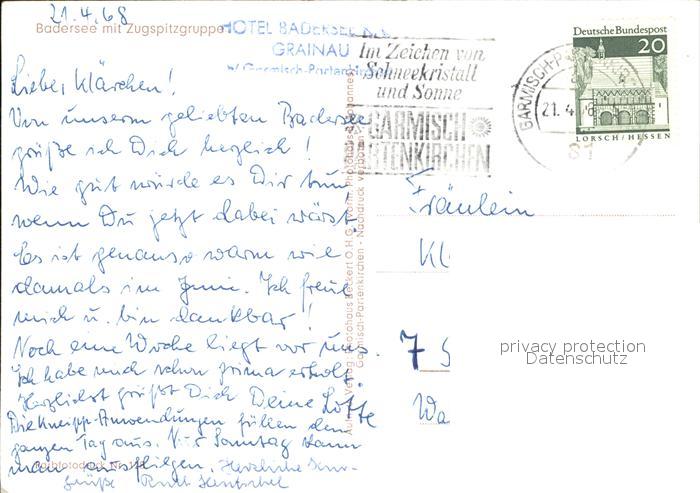 21.4.68
Badersee mit Zugspitzgruppe
HOTEL BADERSEE
GRAINAU
b/ Garmisch-Partenkirchen
Liebe, Klärchen!
Von unserm geliebten Badersee
grüße ich Dich herzlich!
Wie gut würde es Dir tun,
wenn Du jetzt dabei wärst!
Es ist genauso warm wie
damals im Juni. Ich freue
mich u. bin dankbar!
Noch eine Woche liegt vor uns.
Ich habe mich schon prima erholt.
Herzlichst grüßt Dich Deine Lotte
Die Kneipp-Anwendungen füllen den
ganzen Tag aus. Nur Sonntag kann
man ausfliegen. Herzliche
grüße Ruth
Im Zeichen von
Schneekristall
und Sonne
GARMISCH
PARTENKIRCHEN
GARMISCH-P
21.4
Deutsche Bundespost
20
LORSCH/HESSEN
Fräulein
Kl
7 S
Wa
privacy protection
Datenschutz
Garmisch-Partenkirchen - Nachdruck verboten